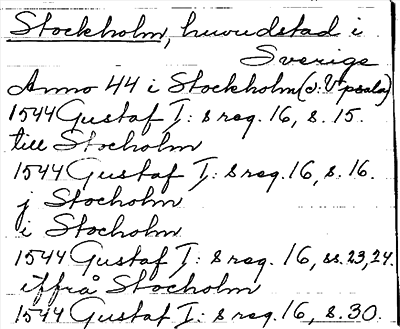 Stockholm, huvudstad i
Sverige
Anno 44 i Stockholm (o: Vpsala)
1544 Gustaf I: s reg. 16, s. 15.
till Stocholm
1544 Gustaf I: s reg. 16, s. 16.
j Stocholm
i Stocholm
1544 Gustaf I: s reg. 16, ss. 23, 24.
iffrå Stocholm
1544 Gustaf I: s reg. 16, s. 30.